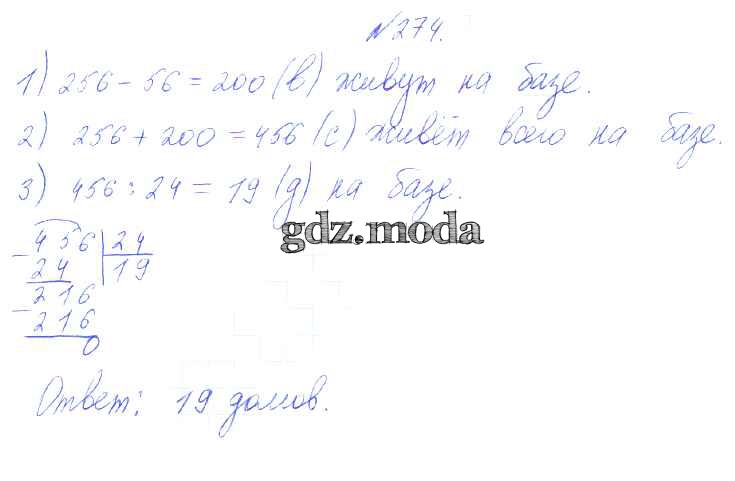 №274.
1) 256 - 56 = 200 (в) живут на базе.
2) 256 + 200 = 456 (с) живёт всего на базе.
3) 456 : 24 = 19 (д) на базе.
gdz.moda
456 | 24
- 24 | 19
216
- 216
0
Ответ: 19 домов.